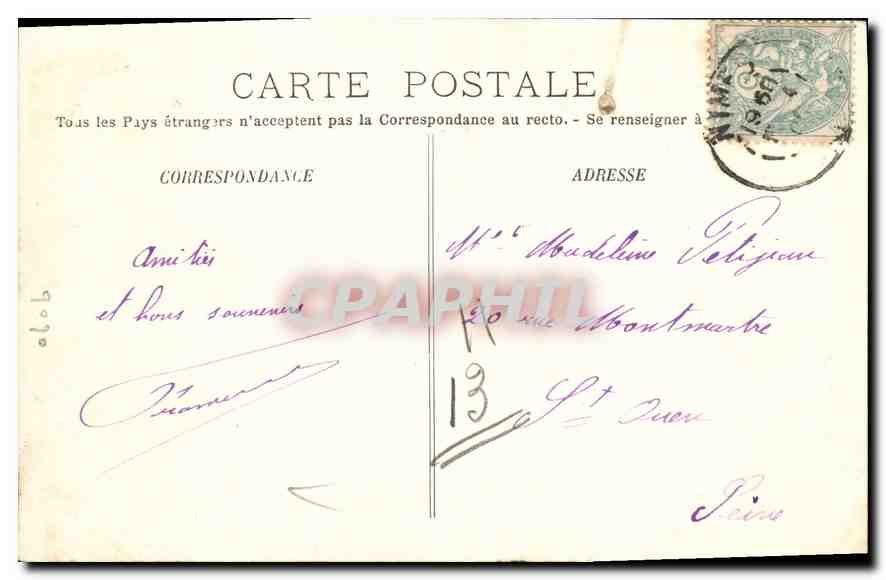 CARTE POSTALE
Tous les Pays étrangers n'acceptent pas la Correspondance au recto. - Se renseigner à
CORRESPONDANCE
ADRESSE
Amitiés
et bons souvenirs
Melle Madeleine Petijean
20 rue Montmartre
St Ouen
Seine
13
CPAPHIL
9070